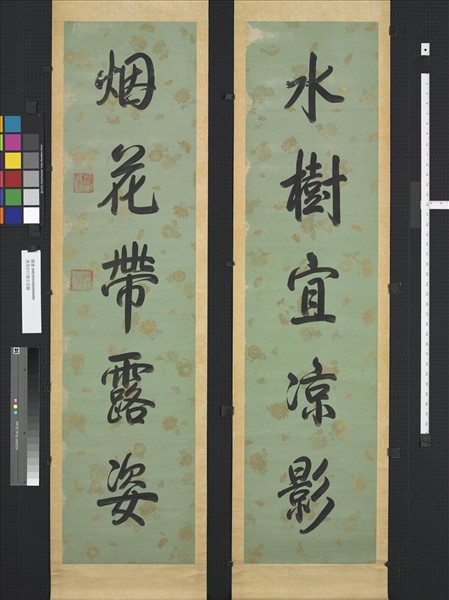 水樹宜凉影
烟花帶露姿